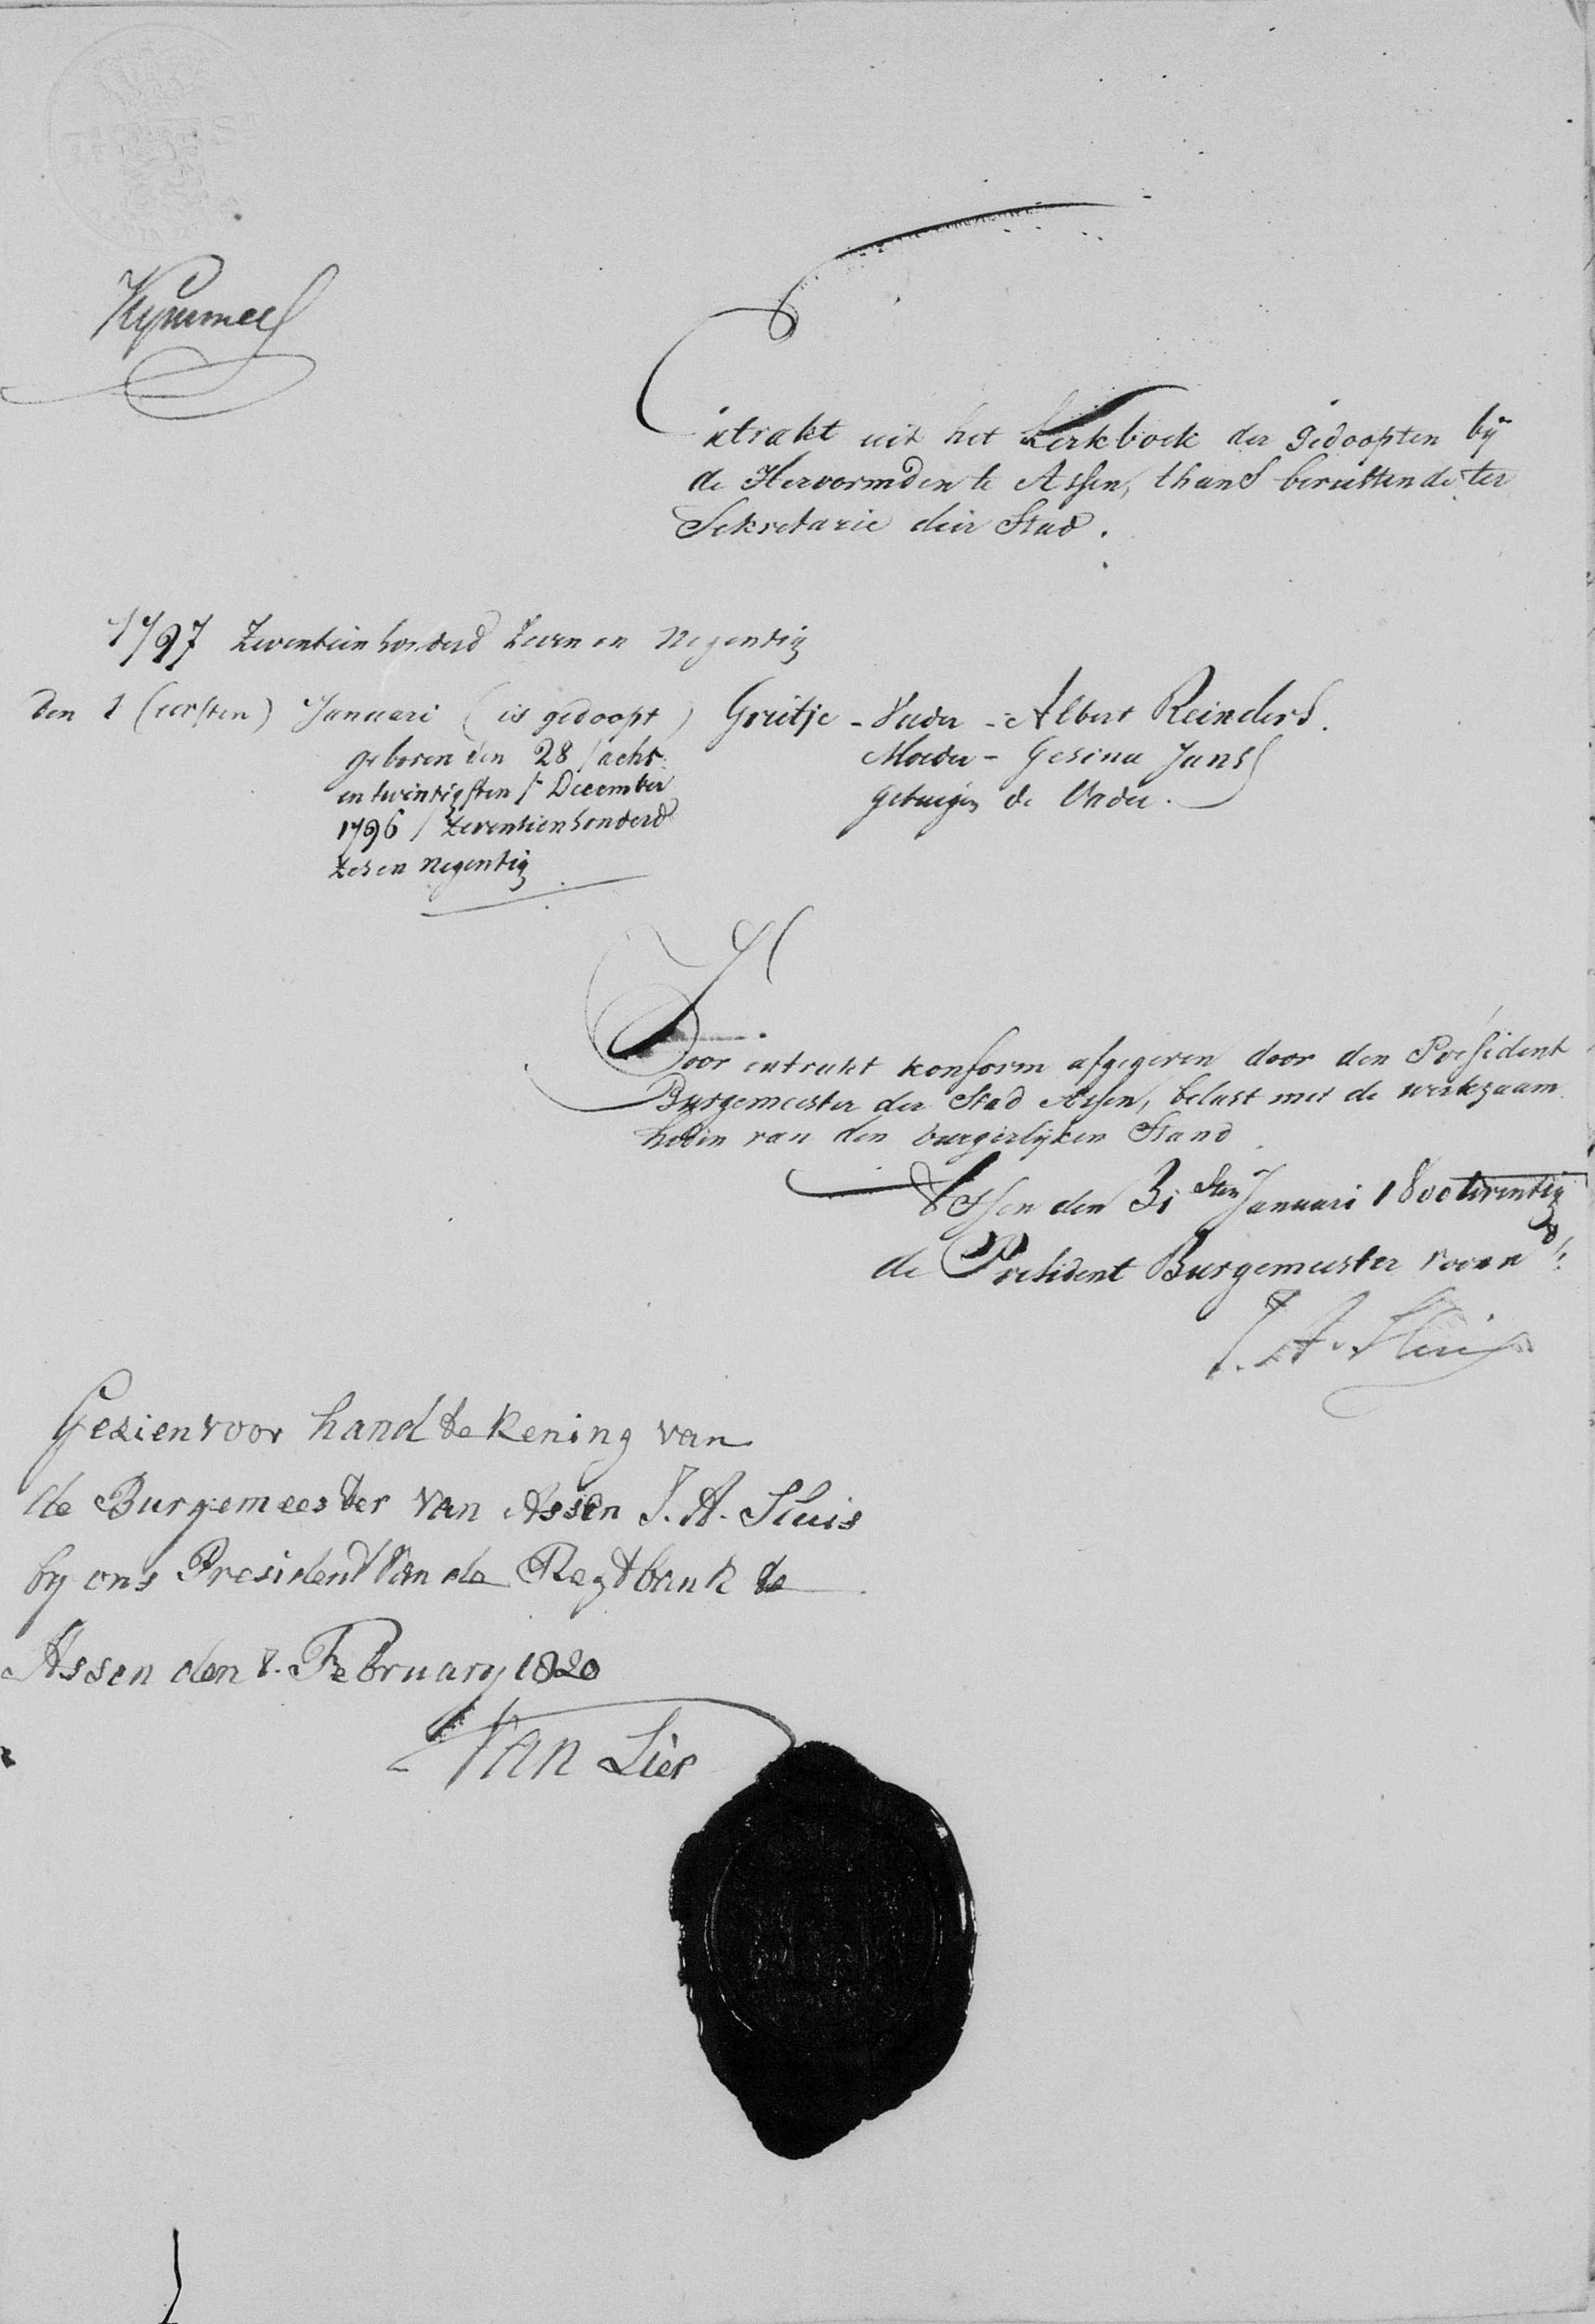 Kymmell
Extrakt uit het Kerkboek der gedoopten bij
de Hervormden te Assen, thans berustende ter
Sekretarie dier Stad.
1797 Zeventienhonderd Zeven en Negentig
den 1 (eersten) Januari (is gedoopt) Grietje - Vader - Albert Reinders.
geboren den 28 / acht Moeder - Gesina Jans
en twintigsten /- December getuigen de Vader.
1796 / Zeventienhonderd
zes en negentig
Voor extrakt konform afgegeven door den President
Burgemeester der Stad Assen, belast met de werkzaam
heden van den burgerlijken Stand
Assen den 31sten Januari 1800 twentig
de President Burgemeester voorn:
J. A. Sluis
Gezien voor handtekening van
de Burgemeester van Assen J. A. Sluis
by ons President Van de Regtbank te
Assen den 8. February 1820
Van Lier